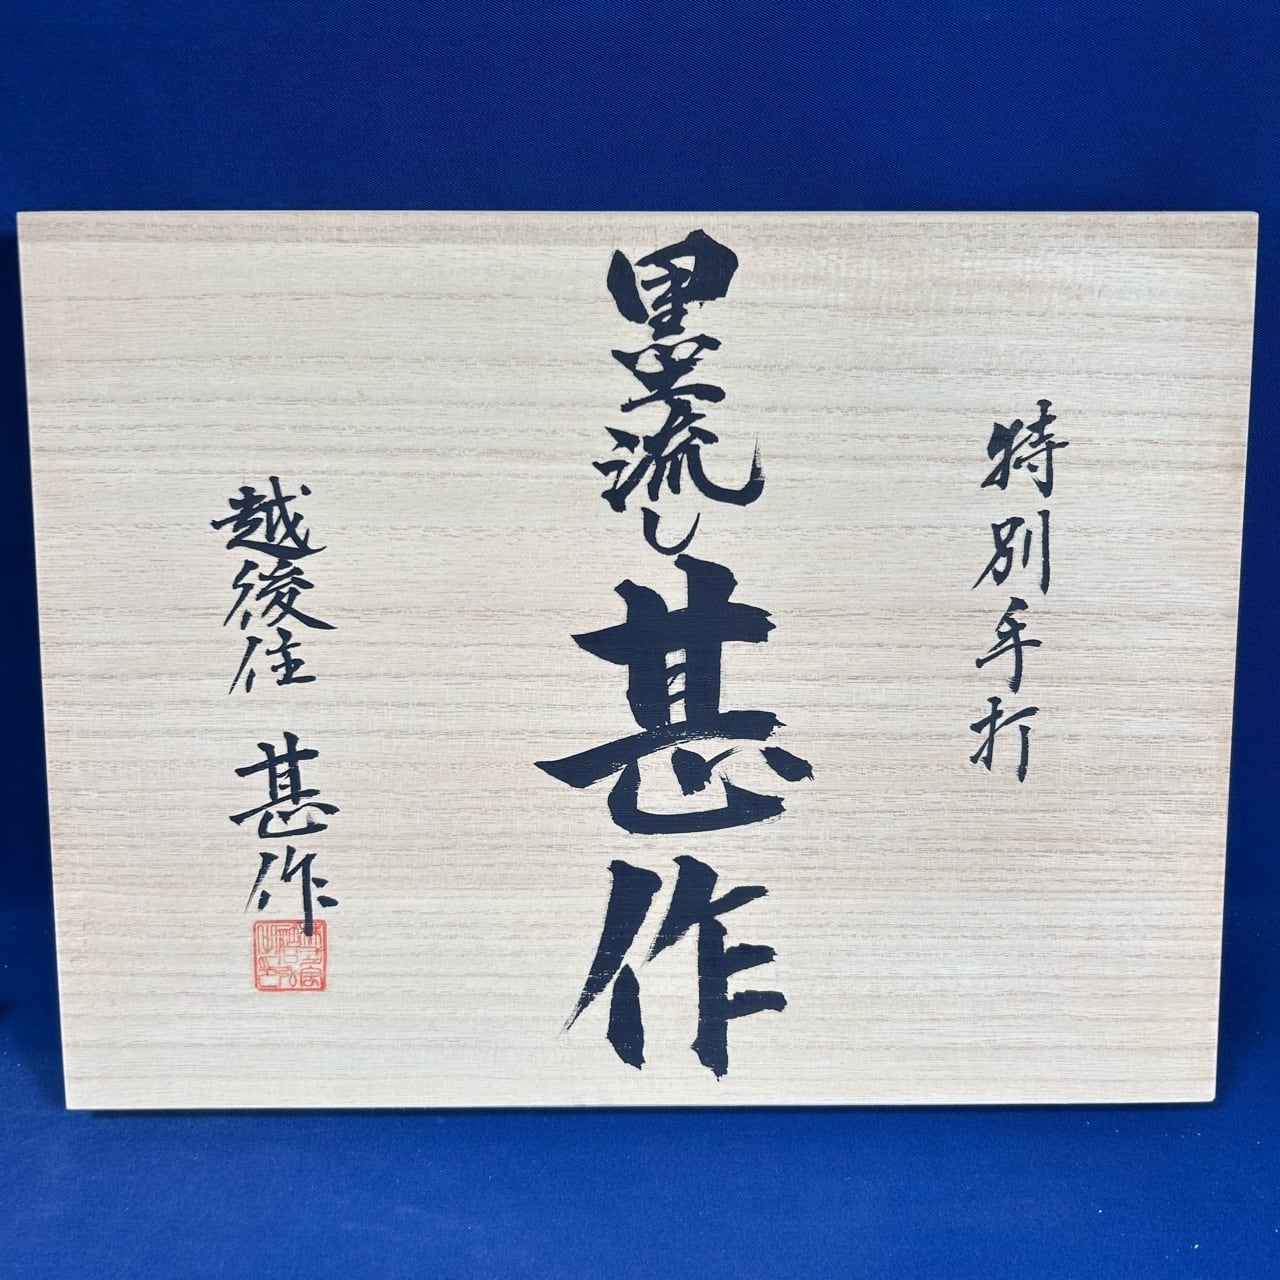 特別手打
墨流し 甚作
越後住 甚作